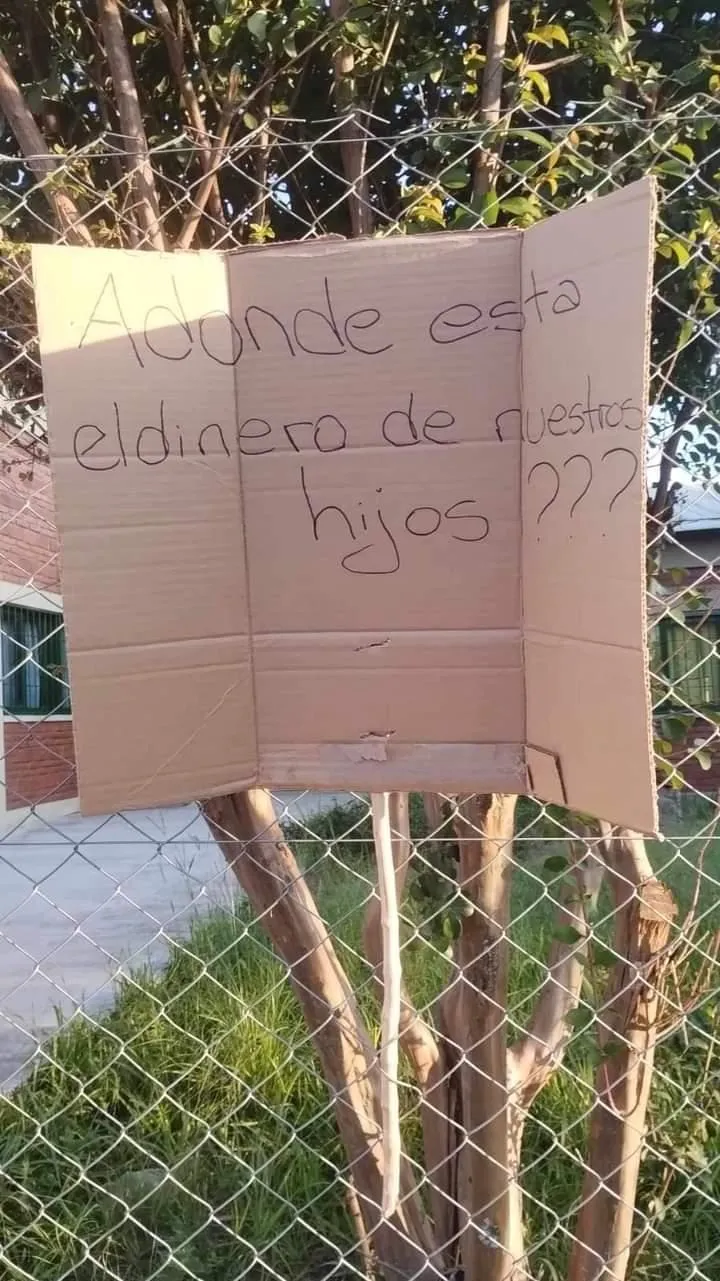 Adonde esta
eldinero de nuestros
hijos ???